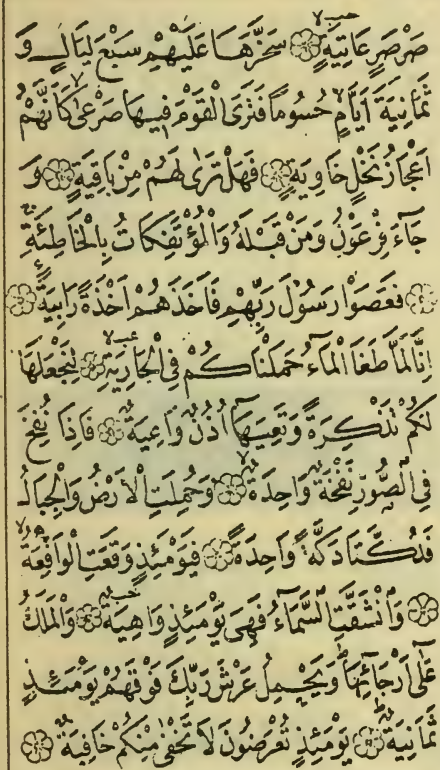 صَرْصَرٍ عَاتِيَةٍ ۝ سَخَّرَهَا عَلَيْهِمْ سَبْعَ لَيَالٍ وَ
ثَمَانِيَةَ أَيَّامٍ حُسُومًا فَتَرَى الْقَوْمَ فِيهَا صَرْعَى كَأَنَّهُمْ
أَعْجَازُ نَخْلٍ خَاوِيَةٍ ۝ فَهَلْ تَرَى لَهُمْ مِنْ بَاقِيَةٍ ۝ وَ
جَاءَ فِرْعَوْنُ وَمَنْ قَبْلَهُ وَالْمُؤْتَفِكَاتُ بِالْخَاطِئَةِ
۝ فَعَصَوْا رَسُولَ رَبِّهِمْ فَأَخَذَهُمْ أَخْذَةً رَابِيَةً ۝
إِنَّا لَمَّا طَغَا الْمَاءُ حَمَلْنَاكُمْ فِي الْجَارِيَةِ ۝ لِنَجْعَلَهَا
لَكُمْ تَذْكِرَةً وَتَعِيَهَا أُذُنٌ وَاعِيَةٌ ۝ فَإِذَا نُفِخَ
فِي الصُّورِ نَفْخَةٌ وَاحِدَةٌ ۝ وَحُمِلَتِ الْأَرْضُ وَالْجِبَالُ
فَدُكَّتَا دَكَّةً وَاحِدَةً ۝ فَيَوْمَئِذٍ وَقَعَتِ الْوَاقِعَةُ
۝ وَانْشَقَّتِ السَّمَاءُ فَهِيَ يَوْمَئِذٍ وَاهِيَةٌ ۝ وَالْمَلَكُ
عَلَى أَرْجَائِهَا وَيَحْمِلُ عَرْشَ رَبِّكَ فَوْقَهُمْ يَوْمَئِذٍ
ثَمَانِيَةٌ ۝ يَوْمَئِذٍ تُعْرَضُونَ لَا تَخْفَى مِنْكُمْ خَافِيَةٌ ۝